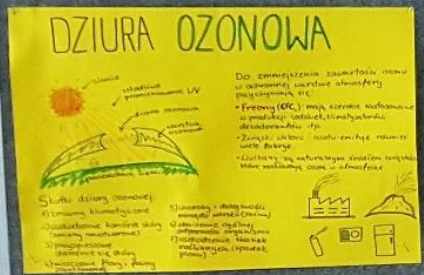 DZIURA OZONOWA
słońce
szkodliwe
promieniowanie UV
dziura ozonowa
warstwa
ozonowa
powierzchnia Ziemi
Do zmniejszenia zawartości ozonu
w ochronnej warstwie atmosfery
przyczyniają się:
• Freony (CFC): mają szerokie zastosowanie
w produkcji lodówek, klimatyzatorów,
dezodorantów itp.
• Związki chloru i azotu emituje również
wiele fabryk.
• Wulkany są naturalnym źródłem związków,
które rozkładają ozon w atmosferze
Skutki dziury ozonowej
1) zmiany klimatyczne
2) uszkodzenie komórek skóry
(zmiany nowotworowe)
3) przyspieszone
starzenie się skóry
4) fauny i flory
5) choroby i dolegliwości
narządu wzroku
6) obniżenie ogólnej
odporności organizmu
7) uszkodzenie tkanek
roślinnych (spadek
plonu)